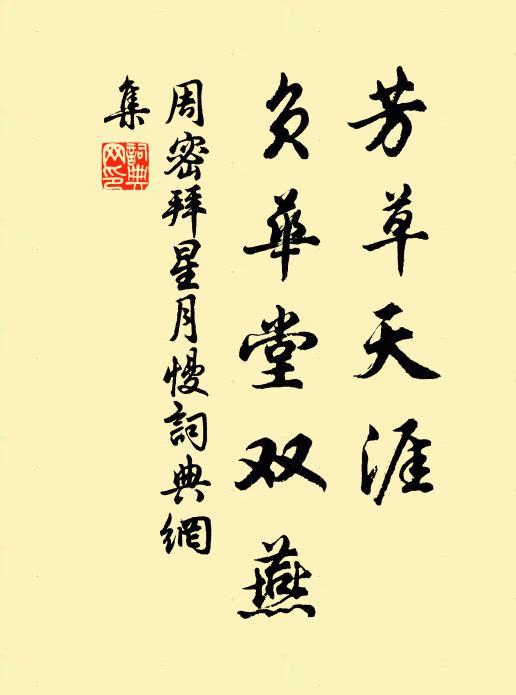 芳草天涯
负華堂双燕
周密拜星月慢詞典網
集
詞典網印